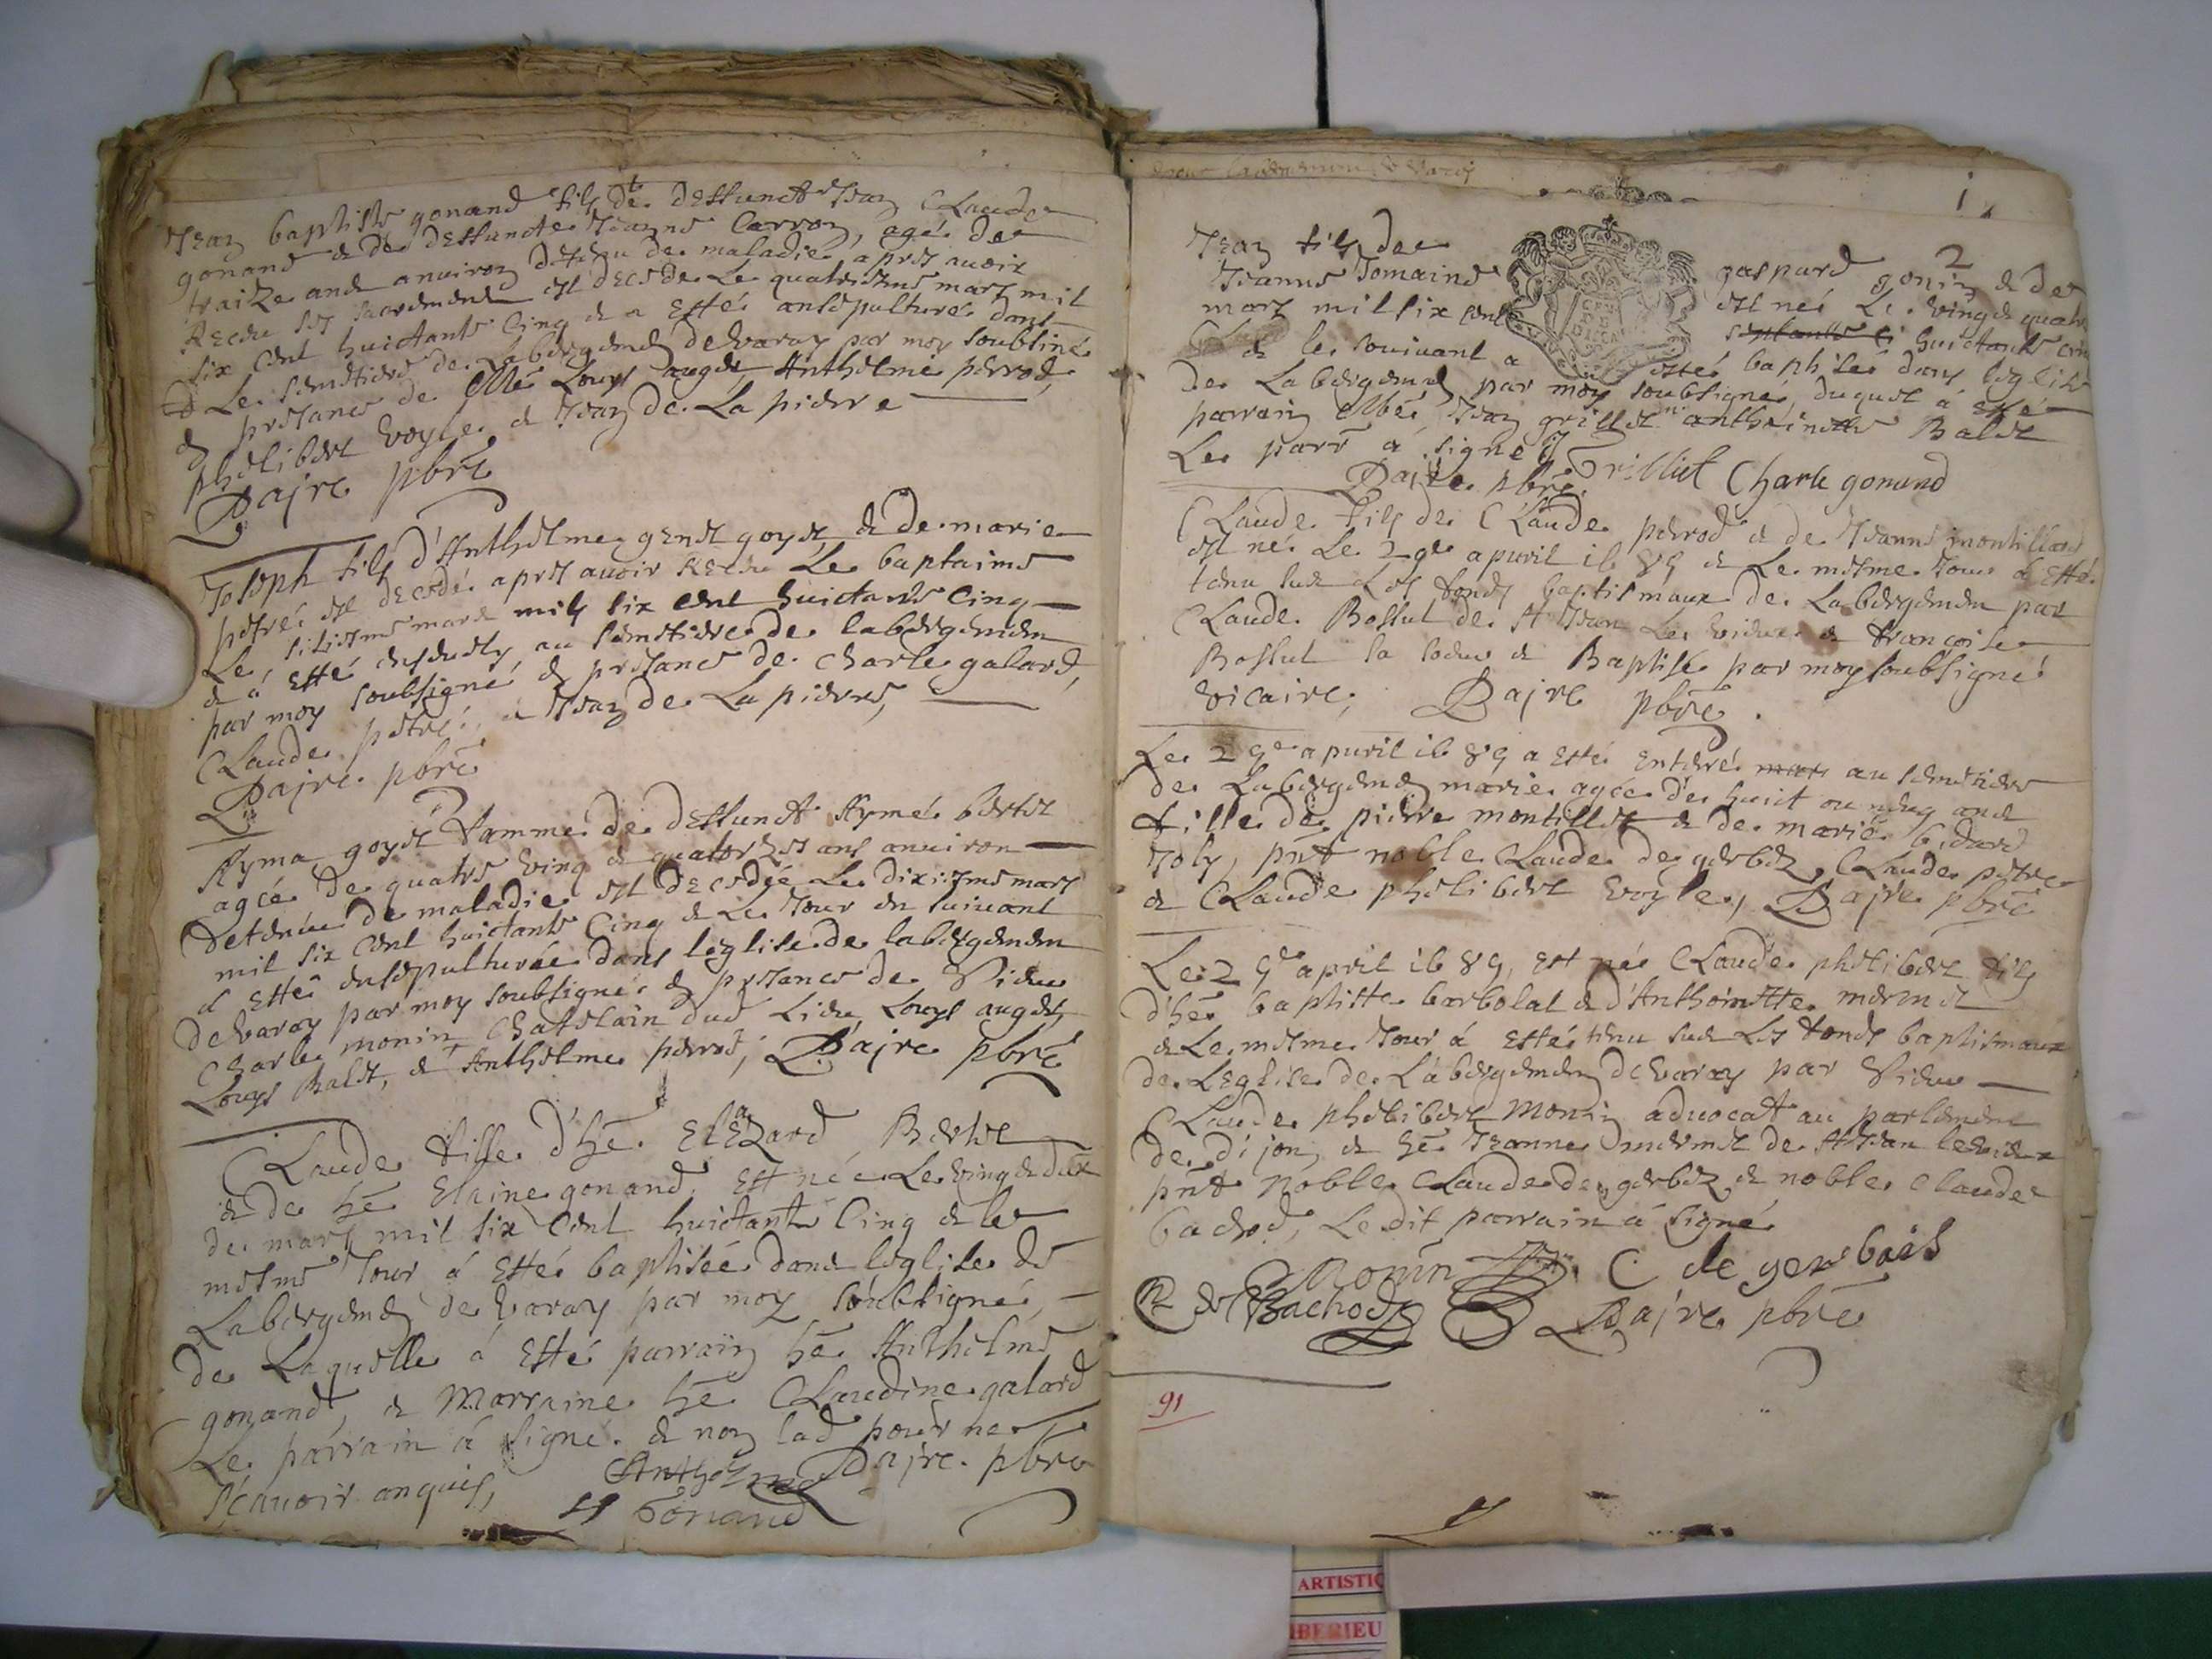 Jean baptiste gonand fils de deffunct Jean Claude
gonand & de deffuncte Jeanne Carron, agé de
traize ans anuiron detenu de maladie apres auoir
Receu ses sacremens est decede Le quatriesme mars mil
six cent huictante Cinq & a esté ansepulturé dans
Le semetiere de Labergement de varay par moy soubsiné
en presance de Louys auger, Anthelme perrod,
phelibert voyle & Jean de La pierre
Dajre pbre
Joseph fils d'Anthelme genet goyet & de marie
petré est decedé apres auoir Receu Le baptaime
Le sixiesme mars mils six cent huictante Cinq
& a esté ensevely au semetiere de labergemen
par moy soubsigné en presance de charle galard,
Claude petré, & Jean de La pierre,
Dajre pbre
Ayma goyet famme de deffunct Aymé bertet
agée de quatre ving & quatorzes ans anuiron
detenue de maladie est decedée Le dixiesme mars
mil six cent huictante Cinq & Le Jour en suiuant
a esté ensepulturée dans leglise de labergemen
de varay par moy soubsigné en presance de Sieur
Charle monin Chatelain dud Lieu, Louys auger,
Louys Balet, & Anthelme perrod, Dajre pbre
Claude fille d'hē Elezard Bertet
& de hē Elaine gonand est née Le ving & deux
de mars mil six Cent huictante Cinq & le
mesme Jour à esté baptisée dans leglise de
Labergemen de varay par moy soubsigné,
de Laquelle à esté parrain hē Anthelme
gonand, & Marraine hē Claudine galard
Le parrain à signé & non lad pour ne
scauoir anquis, Dajre pbre
Anthelme
Gonand
1
2
Jean fils de gaspard gonin & de
Jeanne Tomaine est né Le ving & quatre
mars mil six cent septante ci huictante cin
& le souiuant a esté baptisé dans leglise
de Labergemen par moy soubsigné, duquel à esté
parrain Jean grillet anthoinette Balet
Le parr à signé
Dajre pbre Grilliet Charle gonand
Claude fils de Claude perrod & de Jeanne montillard
est né Le 29e apuril 1685 & Le mesme Jour à esté
tenu sur Les fonds baptismaux de Labergemen par
Claude Bossut de St Jean Le vieux & francoise
Bossut sa soeur & Baptisé par moy soubsigné
vicaire, Dajre pbre
Le 29e apuril 1685 a esté enteré mar au semetiere
de Labergemen marie agée de huict ou neuf ans
fille de pierre montillet & de marie
Joly, pnt noble Claude de gerbez, Claude petre
& Claude phelibert voyle, Dajre pbre
Le 29e april 1685, est né Claude phelibert fils
d'hē baptiste barbolat & d'Anthoinette mermet
& Le mesme Jour à esté tenu sur Les fonds baptismaux
de Leglise de Labergemen de varay par Sieur
Claude phelibert Monin aduocat au parlement
de dijon, & hē Jeanne mermet de St Jean levieux
pnt Noble Claude de gerbez & noble Claude
bachod, Le dit parrain à signé
Monin C de gerbais
Bachod Dajre pbre
91
ARTISTIC